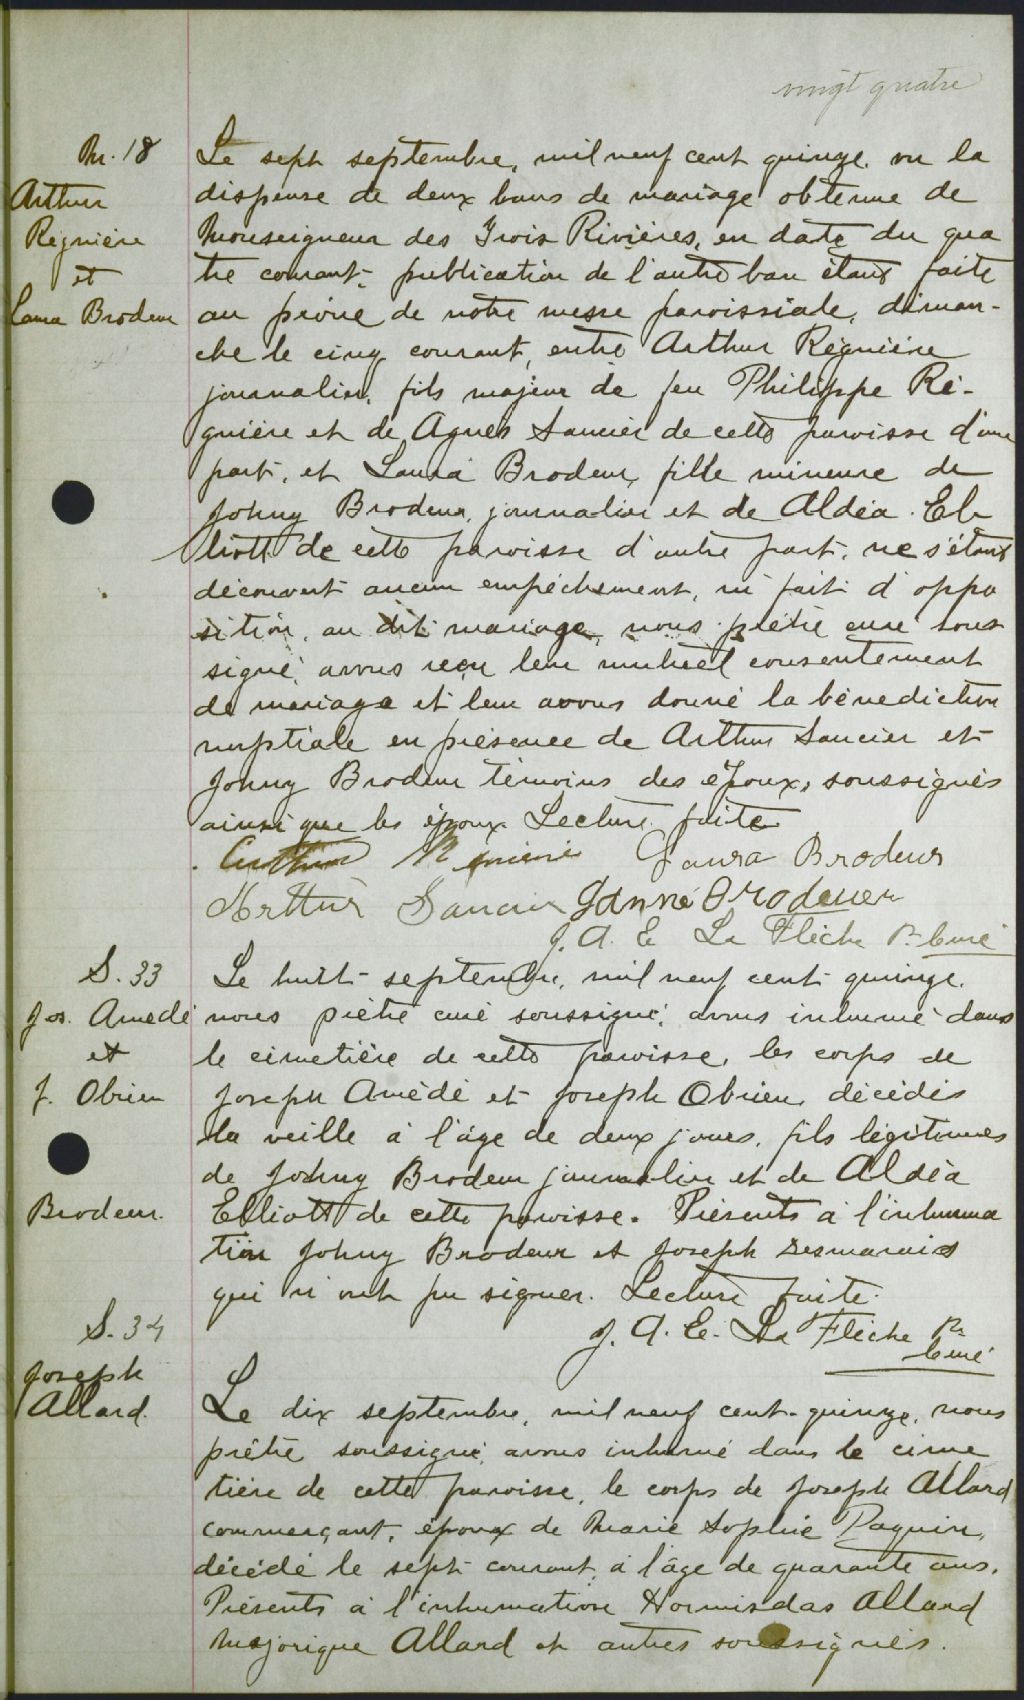 vingt quatre
M. 18
Arthur
Régnière
et
Laura Brodeur
Le sept septembre, mil neuf cent quinze, vu la
dispense de deux bans de mariage obtenue de
Monseigneur des Trois Rivières, en date du qua
tre courant, publication de l'autre ban étant faite
au prône de notre messe paroissiale, diman-
che le cinq courant, entre Arthur Régnière
journalier, fils majeur de feu Philippe Ré-
gnière et de Agnès Saucier de cette paroisse d'une
part, et Laura Brodeur, fille mineure de
Johny Brodeur, journalier et de Aldéa El-
liott de cette paroisse d'autre part, ne s'étant
découvert aucun empêchement, ni fait d'oppo
sition, au dit mariage, nous prêtre curé sous
signé, avons reçu leur mutuel consentement
de mariage et leur avons donné la bénédiction
nuptiale en présence de Arthur Saucier et
Johny Brodeur témoins des époux, soussignés
ainsi que les époux Lecture faite
Arthur Régniere Laura Brodeur
Arttur Saucier Brodeuer
J. A. E. La Flèche Ptre Curé
S. 33
Jos. Amédé
et
J. Obrien
Brodeur.
Le huit septembre, mil neuf cent quinze,
nous prêtre curé soussigné, avons inhumé dans
le cimetière de cette paroisse, les corps de
Joseph Amédé et Joseph Obrien, décédés
la veille à l'âge de deux jours, fils légitimes
de Johny Brodeur journalier et de Aldéa
Elliott de cette paroisse. Présents à l'inhuma
tion Johny Brodeur et Joseph Desmarais
qui n'ont pu signer. Lecture faite.
J. A. E. La Flèche Ptre
Curé
S. 34
Joseph
Allard.
Le dix septembre, mil neuf cent quinze, nous
prêtre soussigné, avons inhumé dans le cime
tière de cette paroisse, le corps de Joseph Allard
commerçant, époux de Marie Sophie Paquin,
décédé le sept courant, à l'âge de quarante ans.
Présents à l'inhumation Hormisdas Allard
Majorique Allard et autres soussignés.